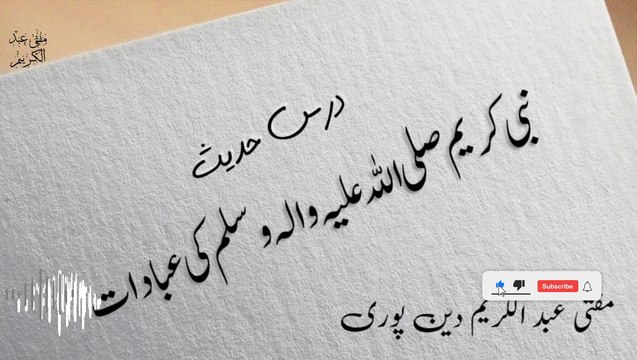 مفتی عبد
الکریم
درس حدیث
نبی کریم صلی اللہ علیہ والہ و سلم کی عبادات
Subscribe
مفتی عبد الکریم دین پوری